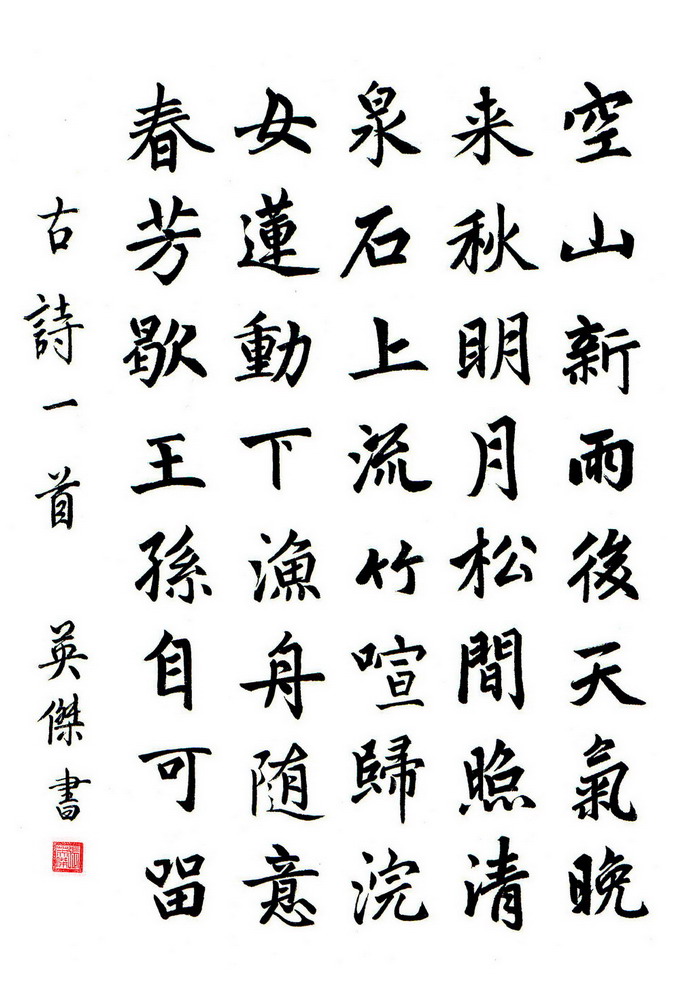 空山新雨後天氣晚
来秋明月松間照清
泉石上流竹喧歸浣
女蓮動下漁舟随意
春芳歇王孫自可留
古詩一首 英傑書